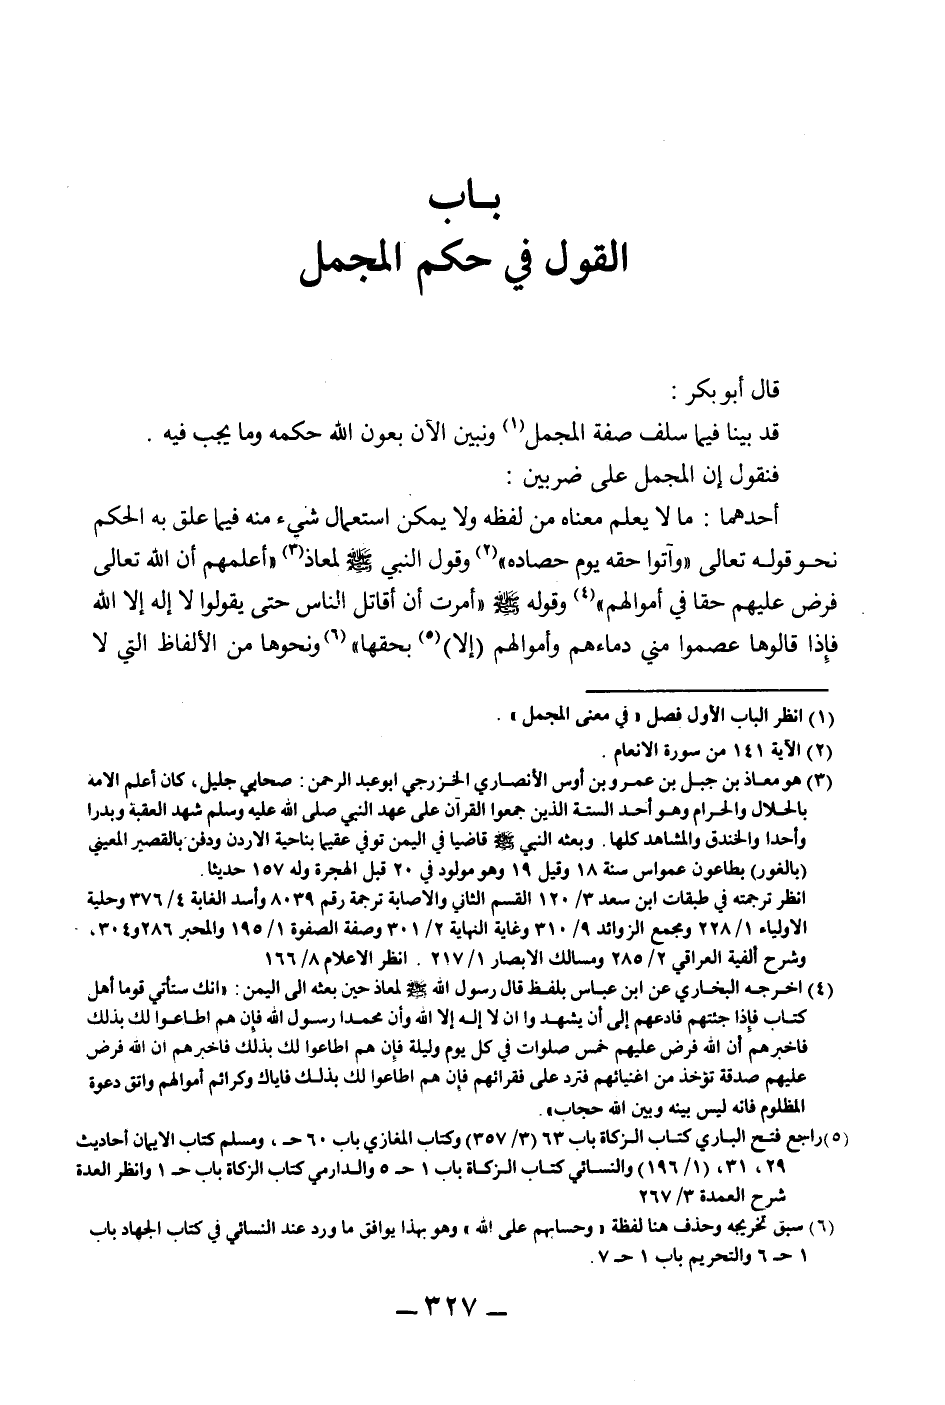 بـاب
القول في حكم المجمل
قال أبو بكر :
قد بينا فيما سلف صفة المجمل(١) ونبين الآن بعون الله حكمه وما يجب فيه .
فنقول إن المجمل على ضربين :
أحدهما : ما لا يعلم معناه من لفظه ولا يمكن استعمال شيء منه فيما علق به الحكم
نحو قوله تعالى «وآتوا حقه يوم حصاده»(٢) وقول النبي ﷺ لمعاذ(٣) «أعلمهم أن الله تعالى
فرض عليهم حقا في أموالهم»(٤) وقوله ﷺ «أمرت أن أقاتل الناس حتى يقولوا لا إله إلا الله
فإذا قالوها عصموا مني دماءهم وأموالهم (إلا)(٥) بحقها»(٦) ونحوها من الألفاظ التي لا
(١) انظر الباب الأول فصل « في معنى المجمل » .
(٢) الآية ١٤١ من سورة الانعام .
(٣) هو معاذ بن جبل بن عمرو بن أوس الأنصاري الخزرجي ابوعبد الرحمن : صحابي جليل، كان أعلم الامه
بالحلال والحرام وهو أحد الستة الذين جمعوا القرآن على عهد النبي صلى الله عليه وسلم شهد العقبة وبدرا
وأحدا والخندق والمشاهد كلها . وبعثه النبي ﷺ قاضيا في اليمن توفي عقيما بناحية الاردن ودفن بالقصير المعيني
(بالغور) بطاعون عمواس سنة ١٨ وقيل ١٩ وهو مولود في ٢٠ قبل الهجرة وله ١٥٧ حديثا.
انظر ترجمته في طبقات ابن سعد ٣/ ١٢٠ القسم الثاني والاصابة ترجمة رقم ٨٠٣٩ وأسد الغابة ٤/ ٣٧٦ وحلية
الاولياء ١/ ٢٢٨ ومجمع الزوائد ٩/ ٣١٠ وغاية النهاية ٢/ ٣٠١ وصفة الصفوة ١/ ١٩٥ والمحبر ٢٨٦ و٣٠٤،
وشرح ألفية العراقي ٢/ ٢٨٥ ومسالك الابصار ١/ ٢١٧ . انظر الاعلام ٨/ ١٦٦
(٤) اخرجه البخاري عن ابن عباس بلفظ قال رسول الله ﷺ لمعاذ حين بعثه الى اليمن : «انك ستأتي قوما أهل
كتاب فإذا جئتهم فادعهم إلى أن يشهدوا ان لا إله إلا الله وأن محمدا رسول الله فإن هم اطاعوا لك بذلك
فاخبرهم أن الله فرض عليهم خمس صلوات في كل يوم وليلة فإن هم اطاعوا لك بذلك فاخبرهم ان الله فرض
عليهم صدقة تؤخذ من اغنيائهم فترد على فقرائهم فإن هم اطاعوا لك بذلك فاياك وكرائم أموالهم واتق دعوة
المظلوم فانه ليس بينه وبين الله حجاب».
(٥) راجع فتح الباري كتاب الزكاة باب ٦٣ (٣/ ٣٥٧) وكتاب المغازي باب ٦٠ حـ ، ومسلم كتاب الايمان أحاديث
٢٩ ، ٣١، (١/ ١٩٦) والنسائي كتاب الزكاة باب ١ حـ ٥ والدارمي كتاب الزكاة باب حـ ١ وانظر العدة
شرح العمدة ٣/ ٢٦٧
(٦) سبق تخريجه وحذف هنا لفظة « وحسابهم على الله » وهو بهذا يوافق ما ورد عند النسائي في كتاب الجهاد باب
١ حـ ٦ والتحريم باب ١ حـ ٧ .
ـ ٣٢٧ ـ